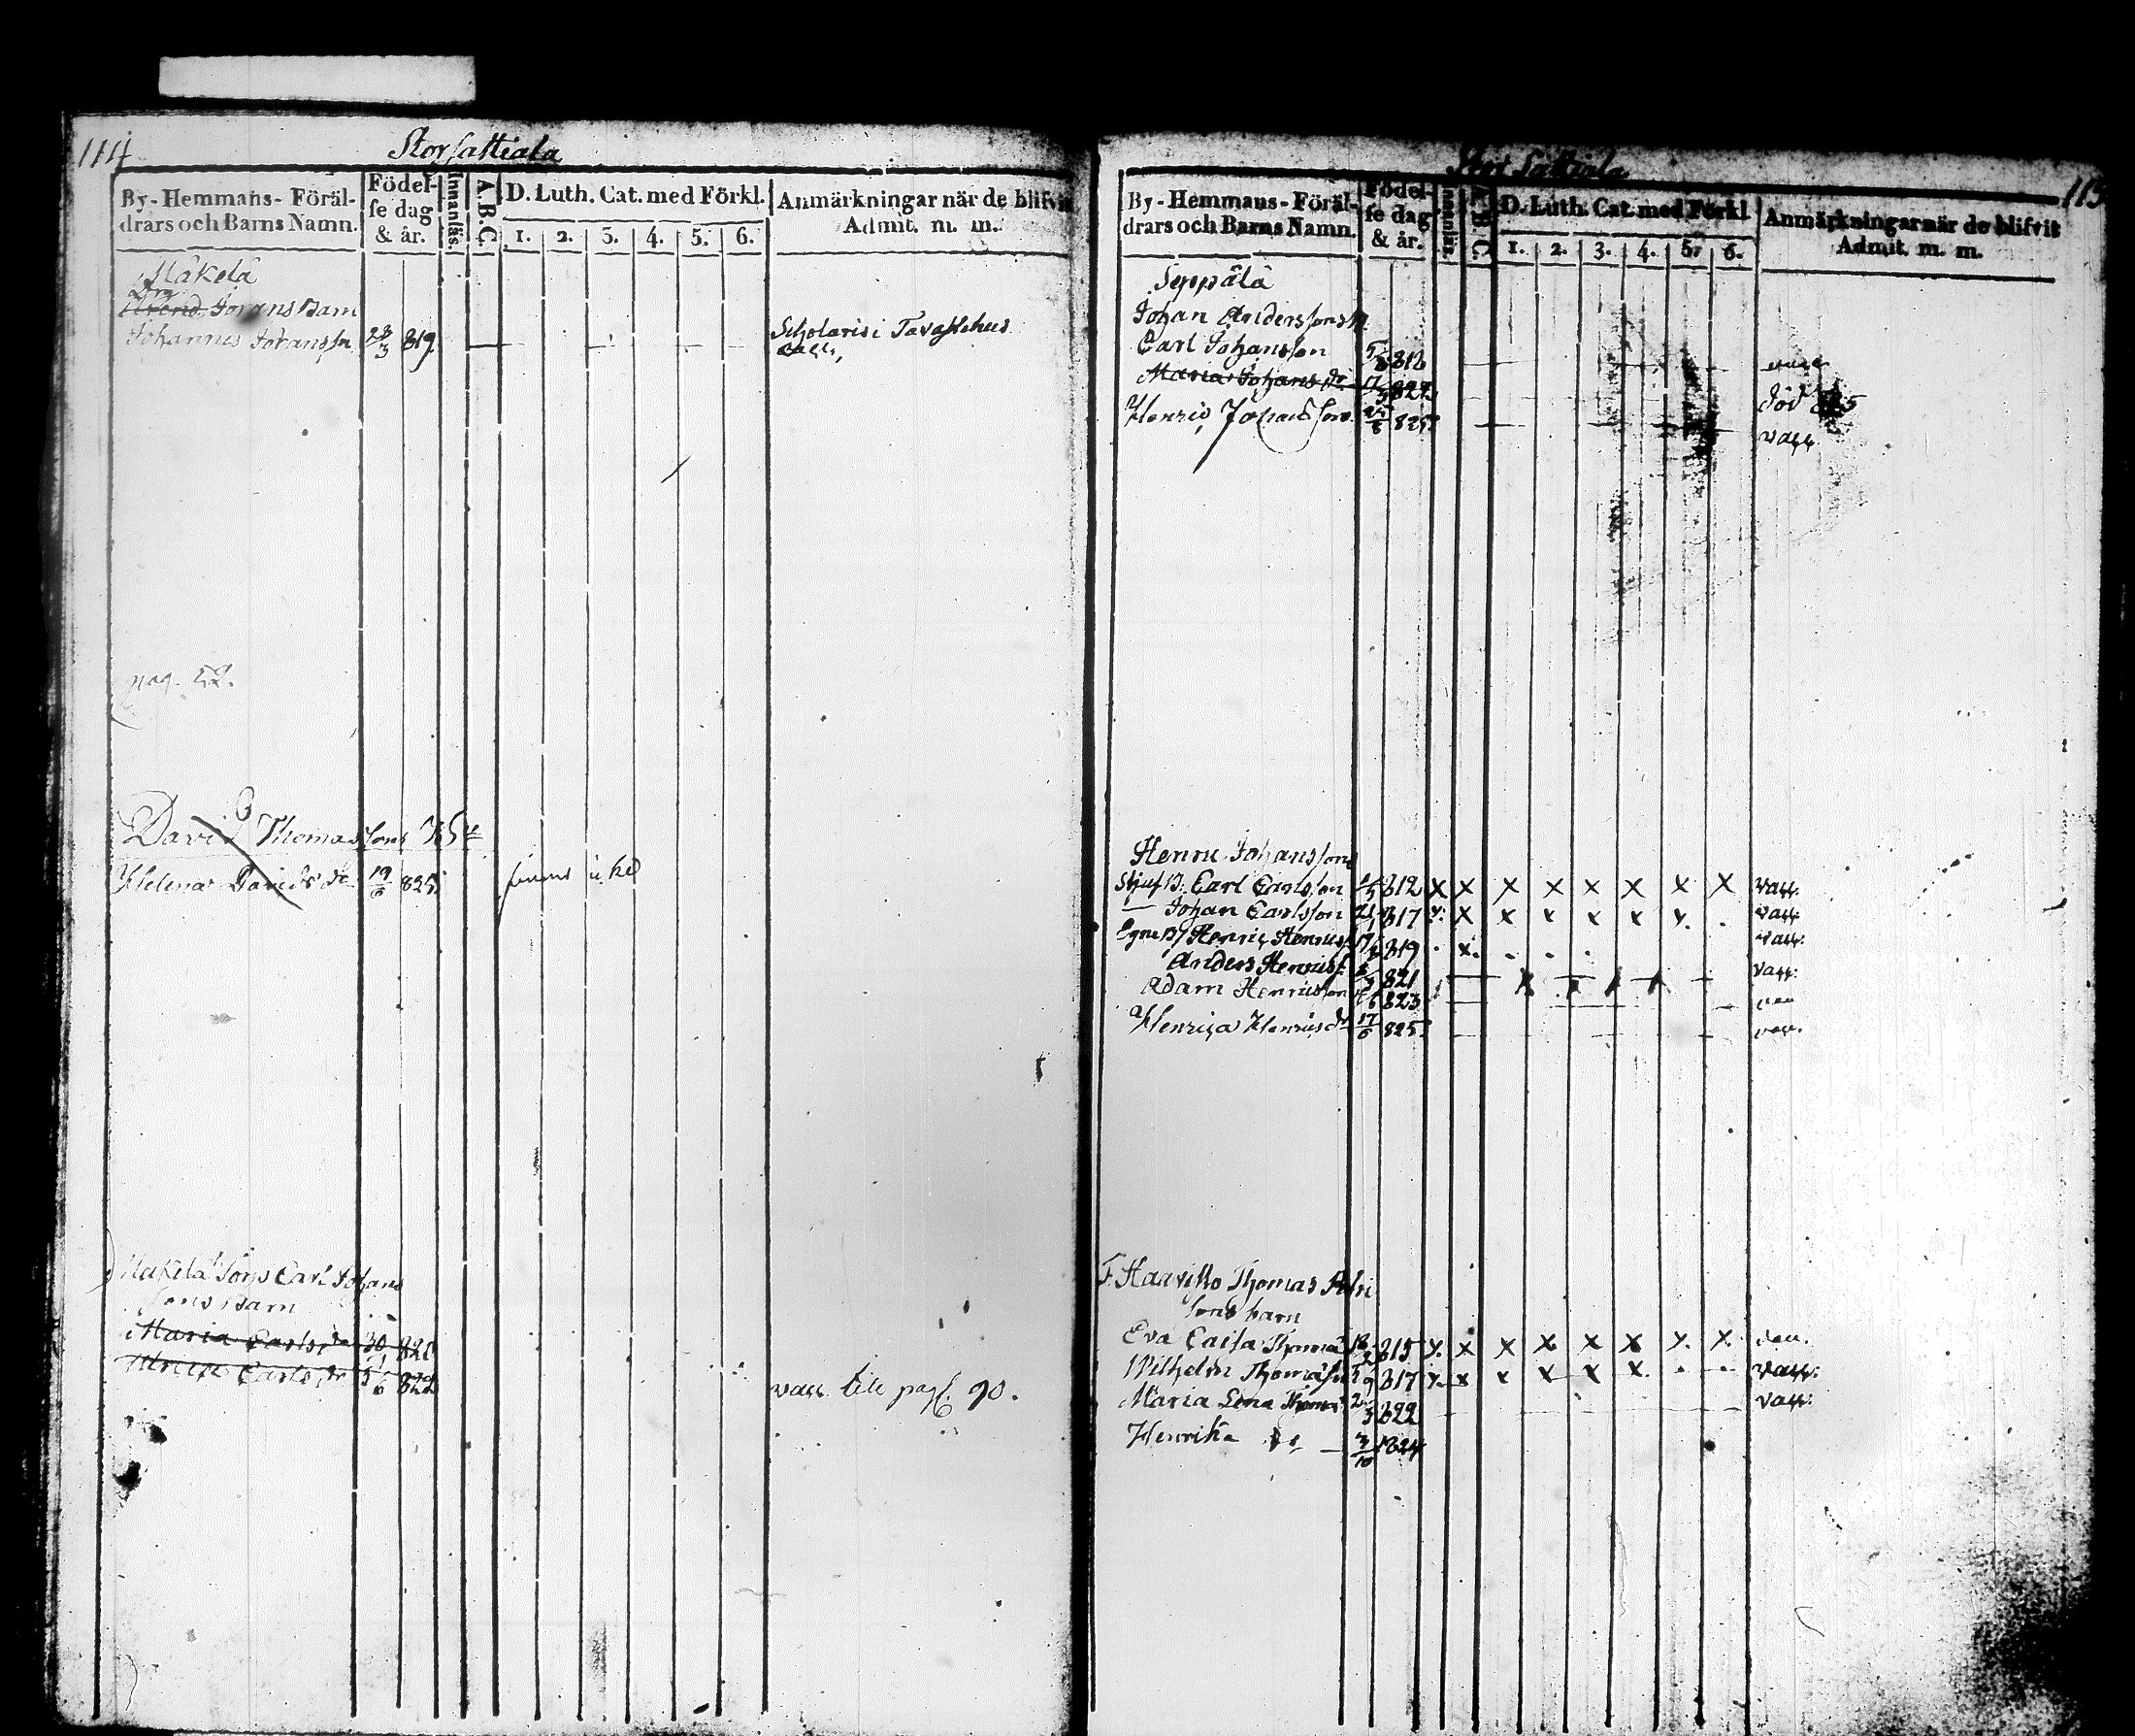 114
Storsattiala
By-Hemmans-Föräl-
drars och Barns Namn.
Födel-
se dag
& år.
Innanläs.
A.B.C.
D. Luth. Cat. med Förkl.
1. 2. 3. 4. 5. 6.
Anmärkningar när de blifvit
Admit. m. m.
Mäkelä
Johans Barn
Johannes Johanss 819
Scholaris i Tavastehus
vacc.
pag. 52.
David Thomassons
Helena Davids dr 19/6 825.
finns
Mäkelä Sons Carl Johans
sons Barn
Maria Carls dr 30 821
Carls dr 5/6 822
vacc. till pag. 90.
Stor Sattiala
115
By-Hemmans-Föräl-
drars och Barns Namn.
Födel-
se dag
& år.
Innanläs.
A.B.C.
D. Luth. Cat. med Förkl
1. 2. 3. 4. 5. 6.
Anmärkningar när de blifvit
Admit. m. m.
Seppälä
Johan Anderssons
Carl Johansson 818
Maria Johans dr 17 822 död
Henric Johansson 825 vacc
Henric Johansson
Stjuf B. Carl Carlsson 812 X X X X X X X X vacc.
— Johan Carlsson 817 x x x x x x x vacc.
Egne B/ Henric Henricss 17 819 x. vacc.
Anders Henricss. 821 vacc.
Adam Henricsson 6 823
Henrica Henrics dr 17/6 825. vacc.
F. Haavisto Thomas
sons barn
Eva Caisa Thomæ 815 x. x x x x x x. x.
Wilhelm Thomæ 5/9 817 x. x x x x x. vacc.
Maria Lena Thomæ 2/3 822 vacc.
Henrika 3/10 1824